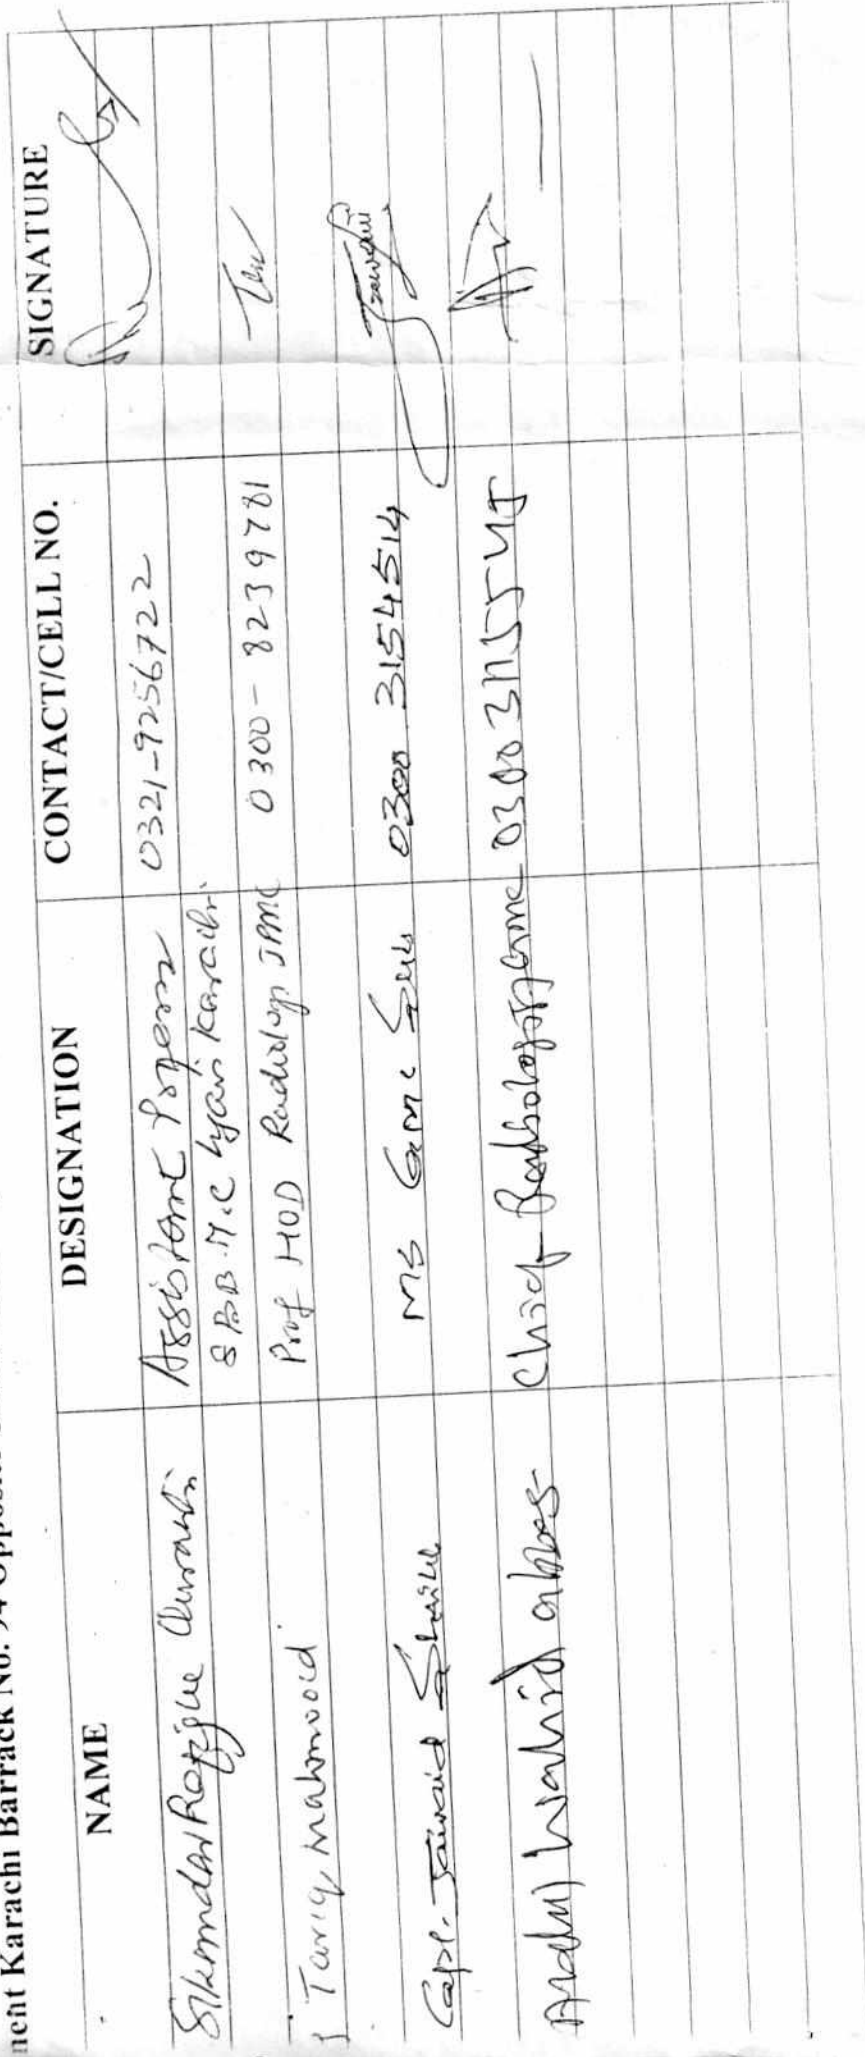 nent Karachi Barrack No. 94 Opposite
NAME DESIGNATION CONTACT/CELL NO. SIGNATURE
Sikandar Rafique Assistant Professor 0321-9256722
S.B.B.M.C Lyari Karachi
Tariq Mahmood Prof HOD Radiology JPMC 0300-8239781
Capt. Jawaid Shaikh MS GMC Suk 0300 3154514
Abdul Wahid abbas Chief Radiologist GMC